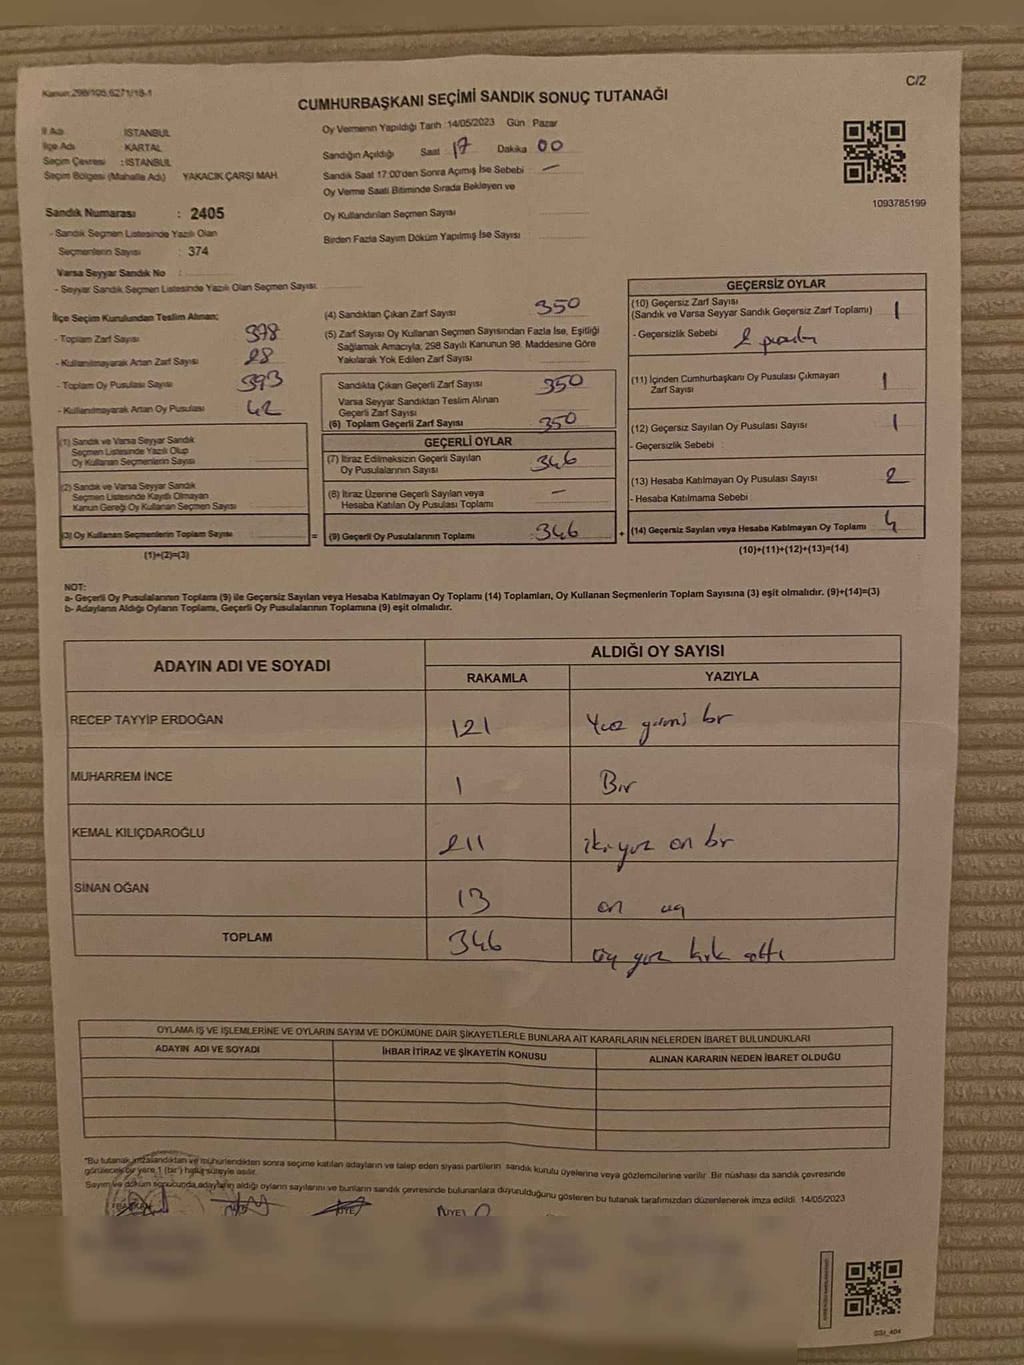 Kanun:298/105,6271/18-1
C/2
CUMHURBAŞKANI SEÇİMİ SANDIK SONUÇ TUTANAĞI
İl Adı İSTANBUL
İlçe Adı KARTAL
Seçim Çevresi : İSTANBUL
Seçim Bölgesi (Mahalle Adı) YAKACIK ÇARŞI MAH.
Sandık Numarası : 2405
- Sandık Seçmen Listesinde Yazılı Olan
Seçmenlerin Sayısı : 374
Varsa Seyyar Sandık No :
- Seyyar Sandık Seçmen Listesinde Yazılı Olan Seçmen Sayısı:
Oy Vermenin Yapıldığı Tarih :14/05/2023 Gün : Pazar
Sandığın Açıldığı Saat 17 Dakika 00
Sandık Saat 17:00'den Sonra Açımış İse Sebebi —
Oy Verme Saati Bitiminde Sırada Bekleyen ve
Oy Kullandırılan Seçmen Sayısı
Birden Fazla Sayım Döküm Yapılmış İse Sayısı
1093785199
İlçe Seçim Kurulundan Teslim Alınan;
- Toplam Zarf Sayısı 378
- Kullanılmayarak Artan Zarf Sayısı 28
- Toplam Oy Pusulası Sayısı 393
- Kullanılmayarak Artan Oy Pusulası 42
(1) Sandık ve Varsa Seyyar Sandık
Seçmen Listesinde Yazılı Olup
Oy Kullanan Seçmenlerin Sayısı
(2) Sandık ve Varsa Seyyar Sandık
Seçmen Listesinde Kayıtlı Olmayan
Kanun Gereği Oy Kullanan Seçmen Sayısı
(3) Oy Kullanan Seçmenlerin Toplam Sayısı =
(1)+(2)=(3)
(4) Sandıktan Çıkan Zarf Sayısı 350
(5) Zarf Sayısı Oy Kullanan Seçmen Sayısından Fazla İse, Eşitliği
Sağlamak Amacıyla, 298 Sayılı Kanunun 98. Maddesine Göre
Yakılarak Yok Edilen Zarf Sayısı
Sandıkta Çıkan Geçerli Zarf Sayısı 350
Varsa Seyyar Sandıktan Teslim Alınan
Geçerli Zarf Sayısı
(6) Toplam Geçerli Zarf Sayısı 350
GEÇERLİ OYLAR
(7) İtiraz Edilmeksizin Geçerli Sayılan
Oy Pusulalarının Sayısı 346
(8) İtiraz Üzerine Geçerli Sayılan veya
Hesaba Katılan Oy Pusulası Toplamı —
(9) Geçerli Oy Pusulalarının Toplamı 346 +
GEÇERSİZ OYLAR
(10) Geçersiz Zarf Sayısı
(Sandık ve Varsa Seyyar Sandık Geçersiz Zarf Toplamı) 1
- Geçersizlik Sebebi : 2
(11) İçinden Cumhurbaşkanı Oy Pusulası Çıkmayan
Zarf Sayısı 1
(12) Geçersiz Sayılan Oy Pusulası Sayısı 1
- Geçersizlik Sebebi :
(13) Hesaba Katılmayan Oy Pusulası Sayısı 2
- Hesaba Katılmama Sebebi :
(14) Geçersiz Sayılan veya Hesaba Katılmayan Oy Toplamı 4
(10)+(11)+(12)+(13)=(14)
NOT:
a- Geçerli Oy Pusulalarının Toplamı (9) ile Geçersiz Sayılan veya Hesaba Katılmayan Oy Toplamı (14) Toplamları, Oy Kullanan Seçmenlerin Toplam Sayısına (3) eşit olmalıdır. (9)+(14)=(3)
b- Adayların Aldığı Oyların Toplamı, Geçerli Oy Pusulalarının Toplamına (9) eşit olmalıdır.
ADAYIN ADI VE SOYADI ALDIĞI OY SAYISI
RAKAMLA YAZIYLA
RECEP TAYYİP ERDOĞAN 121 Yüz yirmi bir
MUHARREM İNCE 1 Bir
KEMAL KILIÇDAROĞLU 211 iki yüz on bir
SİNAN OĞAN 13 on üç
TOPLAM 346 üç yüz kırk altı
OYLAMA İŞ VE İŞLEMLERİNE VE OYLARIN SAYIM VE DÖKÜMÜNE DAİR ŞİKAYETLERLE BUNLARA AİT KARARLARIN NELERDEN İBARET BULUNDUKLARI
ADAYIN ADI VE SOYADI İHBAR İTİRAZ VE ŞİKAYETİN KONUSU ALINAN KARARIN NEDEN İBARET OLDUĞU
"Bu tutanak imzalandıktan ve mühürlendikten sonra seçime katılan adayların ve talep eden siyasi partilerin sandık kurulu üyelerine veya gözlemcilerine verilir. Bir nüshası da sandık çevresinde
görülecek bir yere 1 (bir) hafta süreyle asılır.
Sayım ve döküm sonucunda adayların aldığı oyların sayılarını ve bunların sandık çevresinde bulunanlara duyurulduğunu gösteren bu tutanak tarafımızdan düzenlenerek imza edildi. 14/05/2023
ÜYE
ÜYE